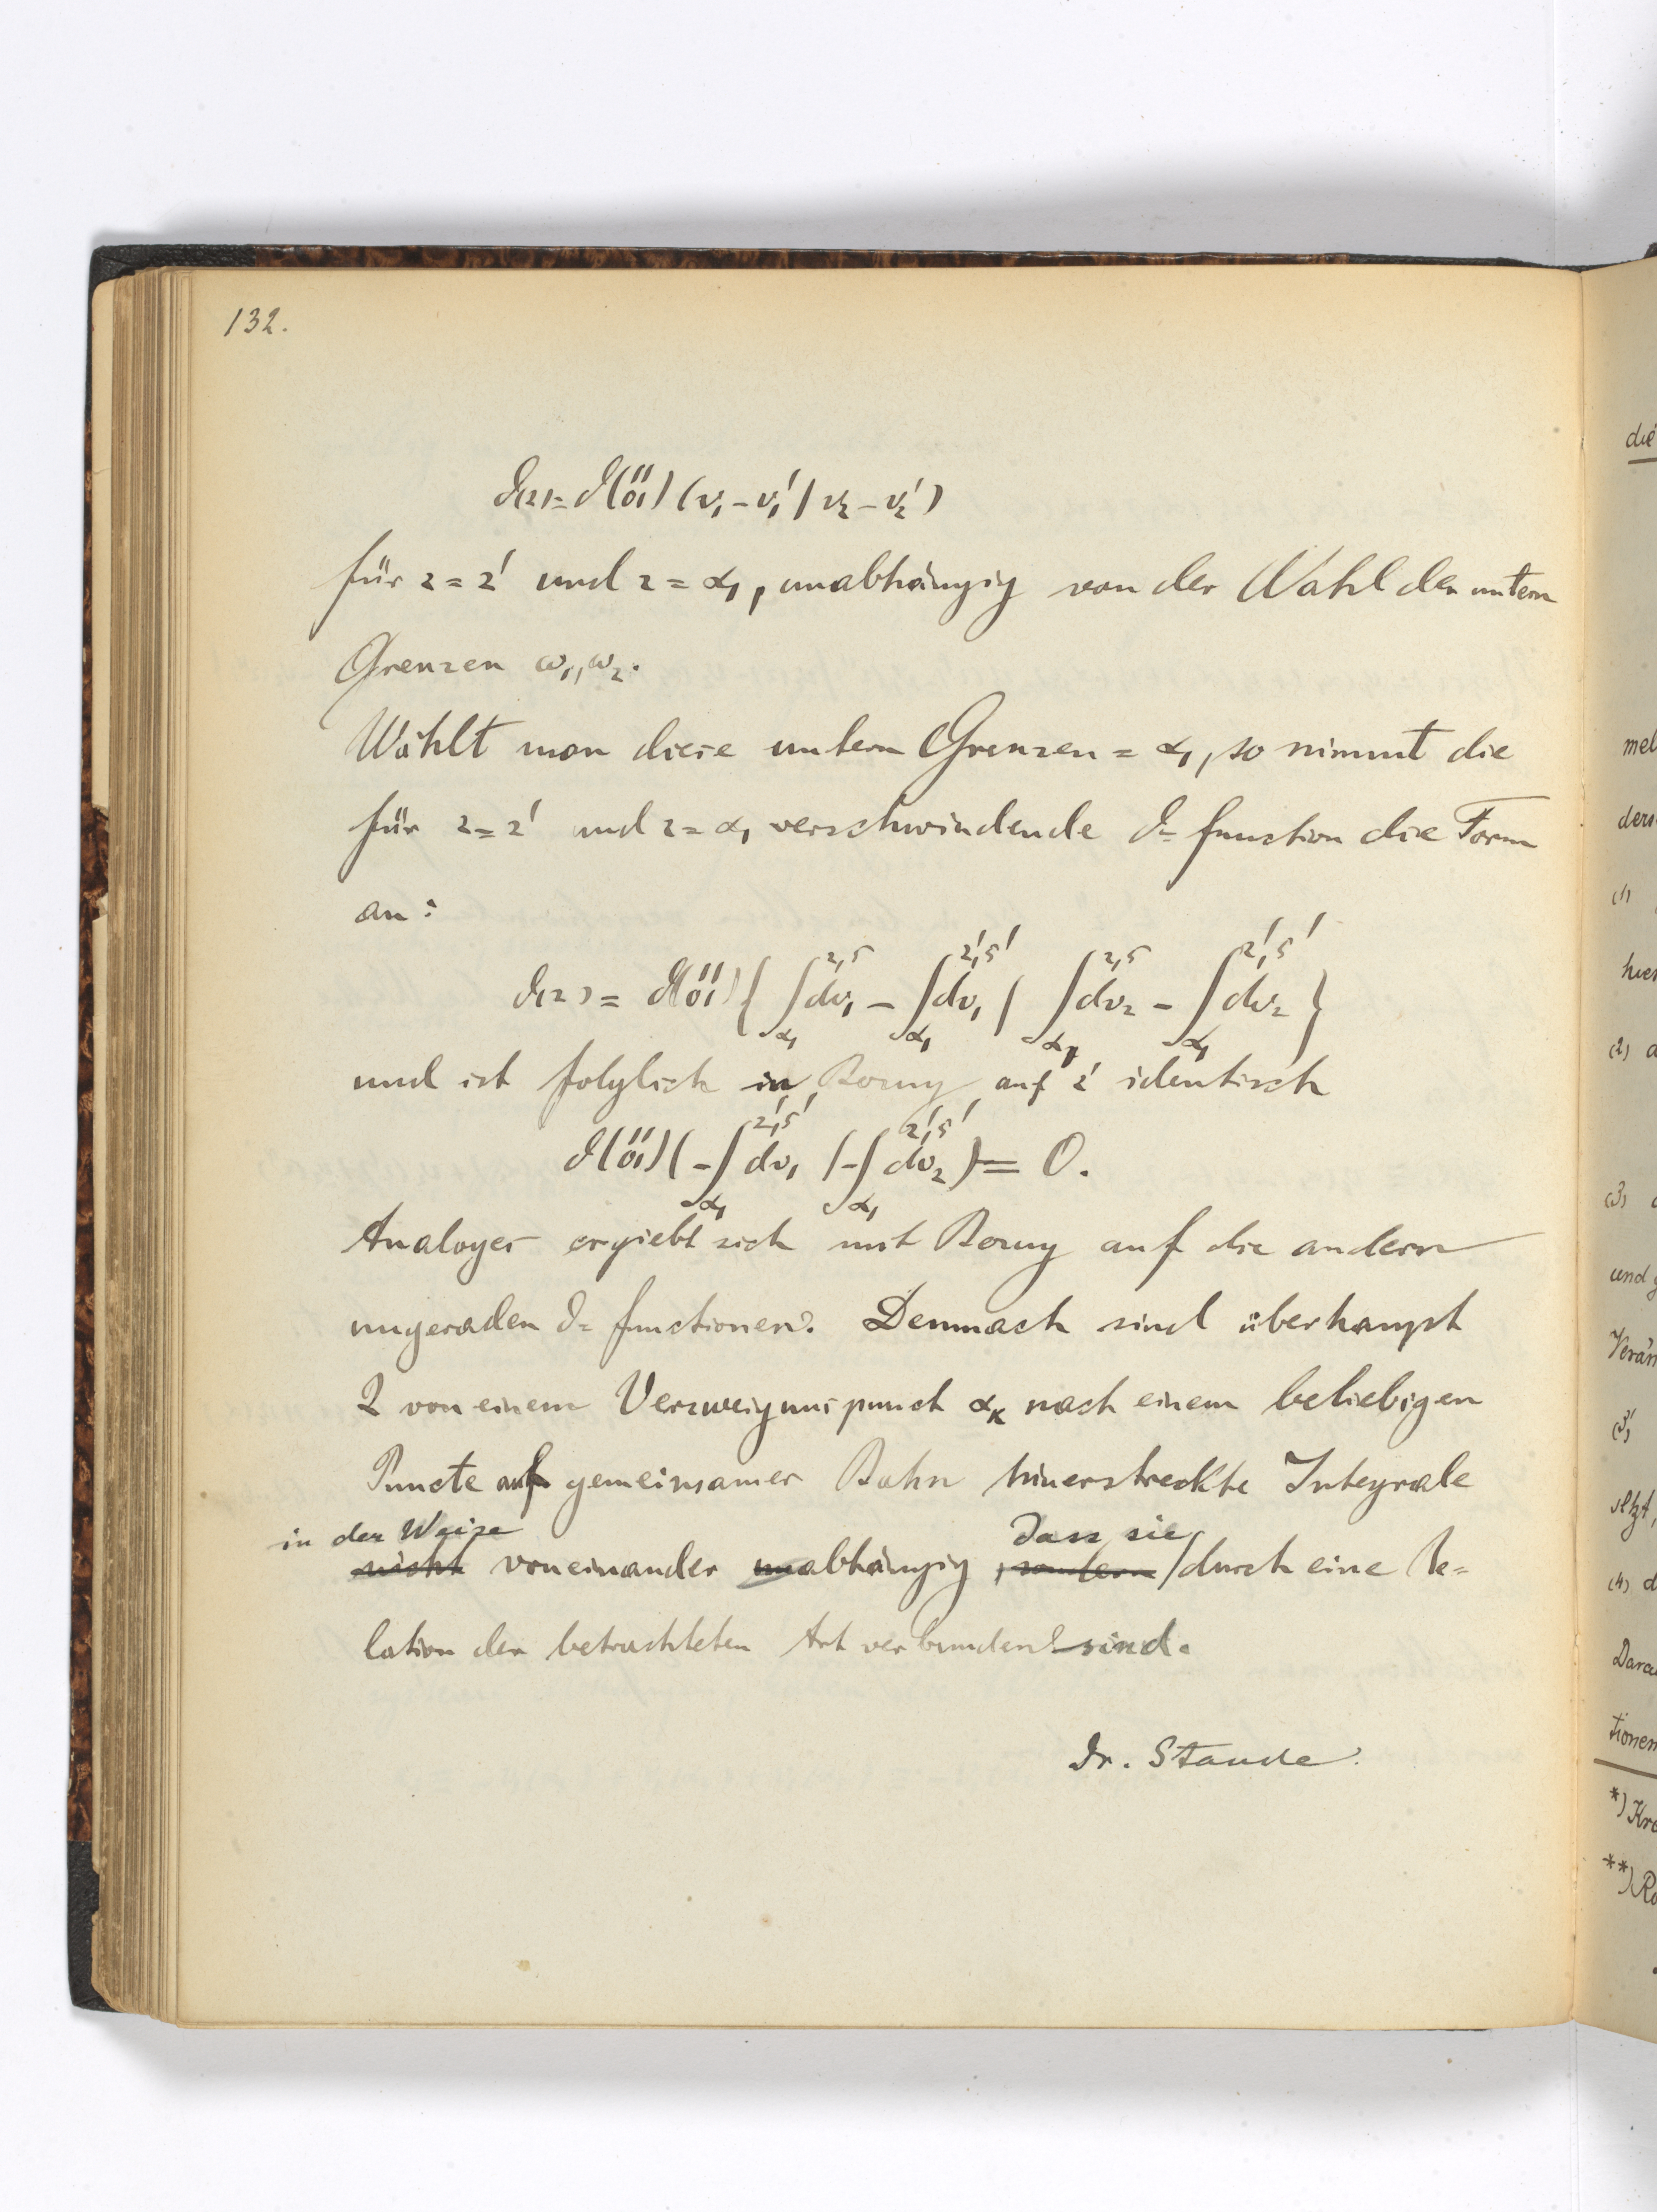 132.
ϑ(z) = ϑ(¹¹₀₁) (v₁ − v₁′ | v₂ − v₂′)
für z = z′ und z = α₁, unabhängig von der Wahl der untern
Grenzen ω₁, ω₂.
Wählt man diese untern Grenzen = α₁, so nimmt die
für z = z′ und z = α₁ verschwindende ϑ= function die Form
an:
ϑ(z) = ϑ(¹¹₀₁) { ∫_{α₁}^{z,s} dv₁ − ∫_{α₁}^{z′,s′} dv₁ | ∫_{α₁}^{z,s} dv₂ − ∫_{α₁}^{z′,s′} dv₂ }
und ist folglich in Bezug auf z′ identisch
ϑ(¹¹₀₁) ( − ∫_{α₁}^{z′,s′} dv₁ | − ∫_{α₁}^{z′,s′} dv₂ ) = 0.
Analoges ergiebt sich mit Bezug auf die andern
ungeraden ϑ= functionen. Demnach sind überhaupt
2 von einem Verzweigungspunct α_κ nach einem beliebigen
Puncte auf gemeinsamer Bahn hinerstreckte Integrale
in der Weise dass sie
nicht voneinander unabhängig, sondern / durch eine Re=
lation der betrachteten Art verbunden sind.
Dr. Staude.
die
mel
ders
(1)
hier
(2) d
(3)
und g
Verän
(3′)
(4) d
Dara
tionen
*) Kr
**) Ro